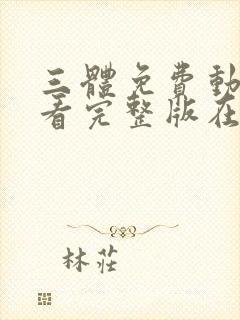 三體免費動
看完整版在
林莊